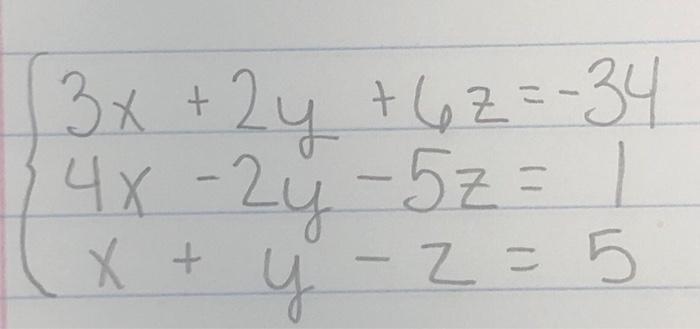 3x + 2y + 6z = -34
4x - 2y - 5z = 1
x + y - z = 5